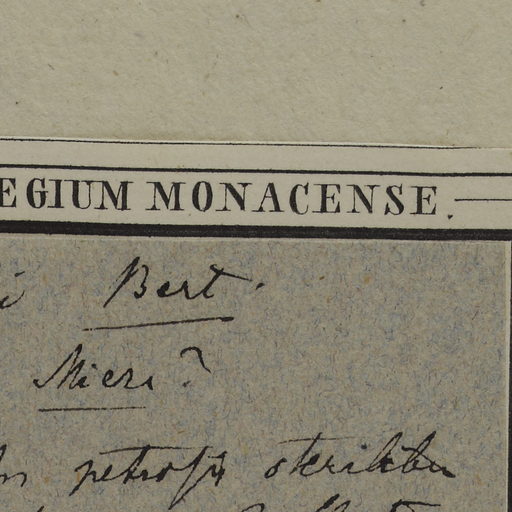 EGIUM MONACENSE.
i Bert.
Micri?
in petrosis sterilibus